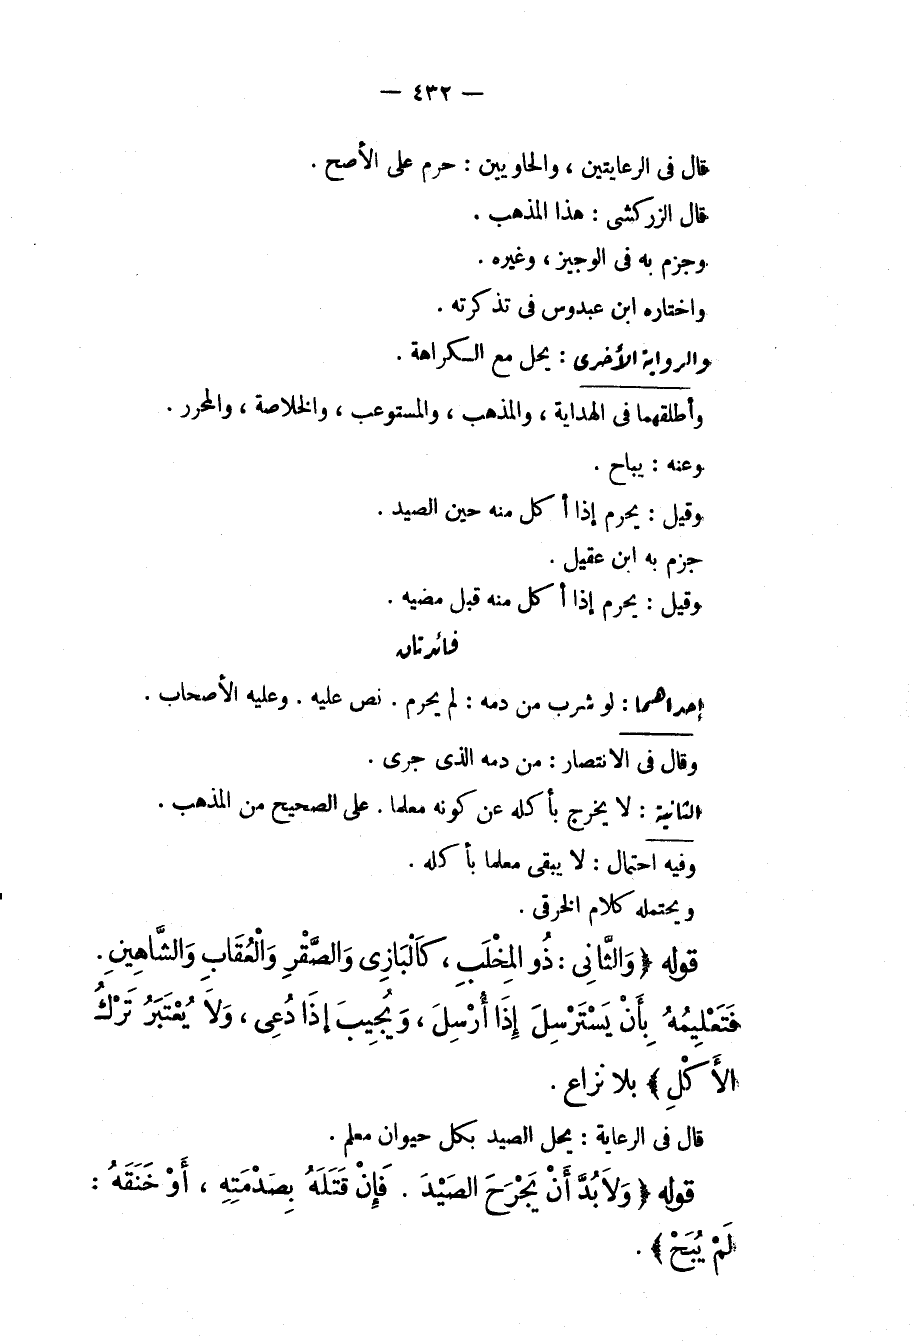 — ٤٣٢ —
قال فى الرعايتين ، والحاويين : حرم على الأصح .
قال الزركشى : هذا المذهب .
وجزم به فى الوجيز ، وغيره .
واختاره ابن عبدوس فى تذكرته .
والرواية الأخرى : يحل مع الكراهة .
وأطلقهما فى الهداية ، والمذهب ، والمستوعب ، والخلاصة ، والمحرر .
وعنه : يباح .
وقيل : يحرم إذا أكل منه حين الصيد .
جزم به ابن عقيل .
وقيل : يحرم إذا أكل منه قبل مضيه .
فائدتان
إحداهما : لو شرب من دمه : لم يحرم . نص عليه . وعليه الأصحاب .
وقال فى الانتصار : من دمه الذى جرى .
الثانية : لا يخرج بأكله عن كونه معلما . على الصحيح من المذهب .
وفيه احتمال : لا يبقى معلما بأكله .
ويحتمله كلام الخرقى .
قوله ﴿ وَالثَّانِى : ذُو المِخْلَبِ ، كَالْبَازِى وَالصَّقْرِ وَالْعُقَابِ وَالشَّاهِينِ .
فَتَعْلِيمُهُ بِأَنْ يَسْتَرْسِلَ إِذَا أُرْسِلَ ، وَيُجِيبَ إِذَا دُعِى ، وَلاَ يُعْتَبَرُ تَرْكُ
الأَكْلِ ﴾ بلا نزاع .
قال فى الرعاية : يحل الصيد بكل حيوان معلم .
قوله ﴿ وَلاَبُدَّ أَنْ يَجْرَحَ الصَيْدَ . فَإِنْ قَتَلَهُ بِصَدْمَتِهِ ، أَوْ خَنَقَهُ :
لَمْ يُبَحْ ﴾ .